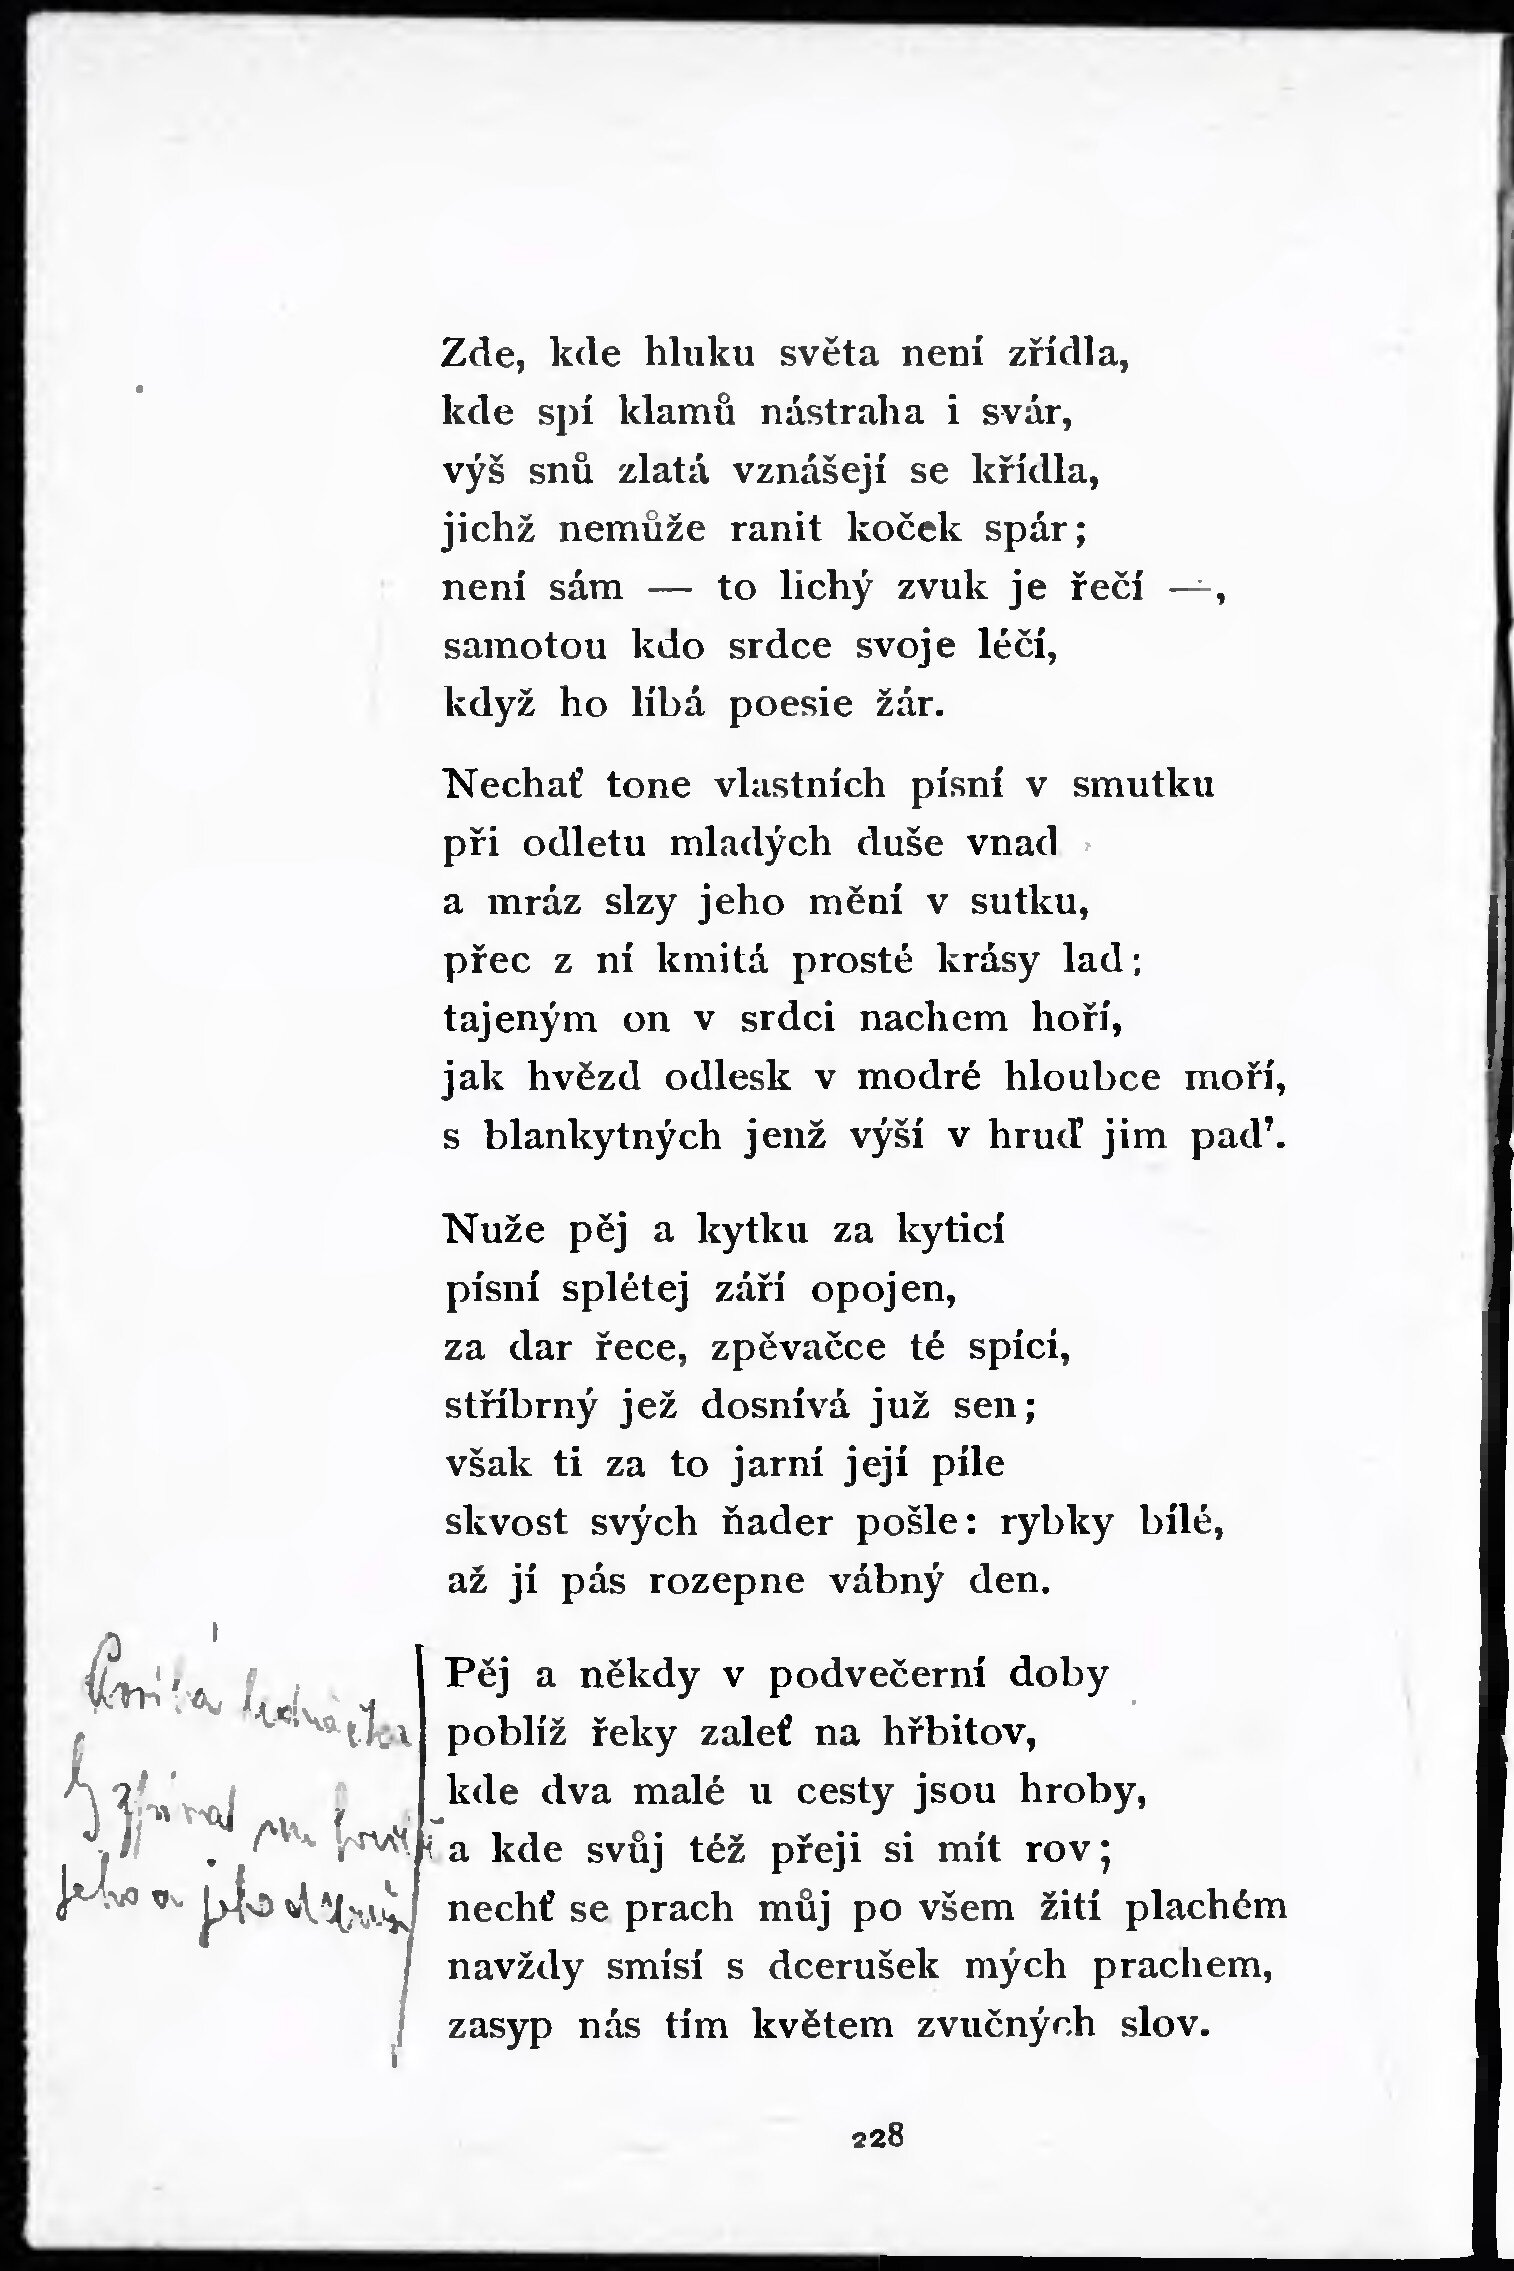 Zde, kde hluku světa není zřídla,
kde spí klamů nástraha i svár,
výš snů zlatá vznášejí se křídla,
jichž nemůže ranit koček spár;
není sám — to lichý zvuk je řečí —,
samotou kdo srdce svoje léčí,
když ho líbá poesie žár.
Nechať tone vlastních písní v smutku
při odletu mladých duše vnad
a mráz slzy jeho mění v sutku,
přec z ní kmitá prosté krásy lad;
tajeným on v srdci nachem hoří,
jak hvězd odlesk v modré hloubce moří,
s blankytných jenž výší v hruď jim pad’.
Nuže pěj a kytku za kyticí
písní splétej září opojen,
za dar řece, zpěvačce té spící,
stříbrný jež dosnívá již sen;
však ti za to jarní její píle
skvost svých ňader pošle: rybky bílé,
až jí pás rozepne vábný den.
Pěj a někdy v podvečerní doby
poblíž řeky zaleť na hřbitov,
kde dva malé u cesty jsou hroby,
a kde svůj též přeji si mít rov;
nechť se prach můj po všem žití plachém
navždy smísí s dcerušek mých prachem,
zasyp nás tím květem zvučných slov.
jeho a jeho
228